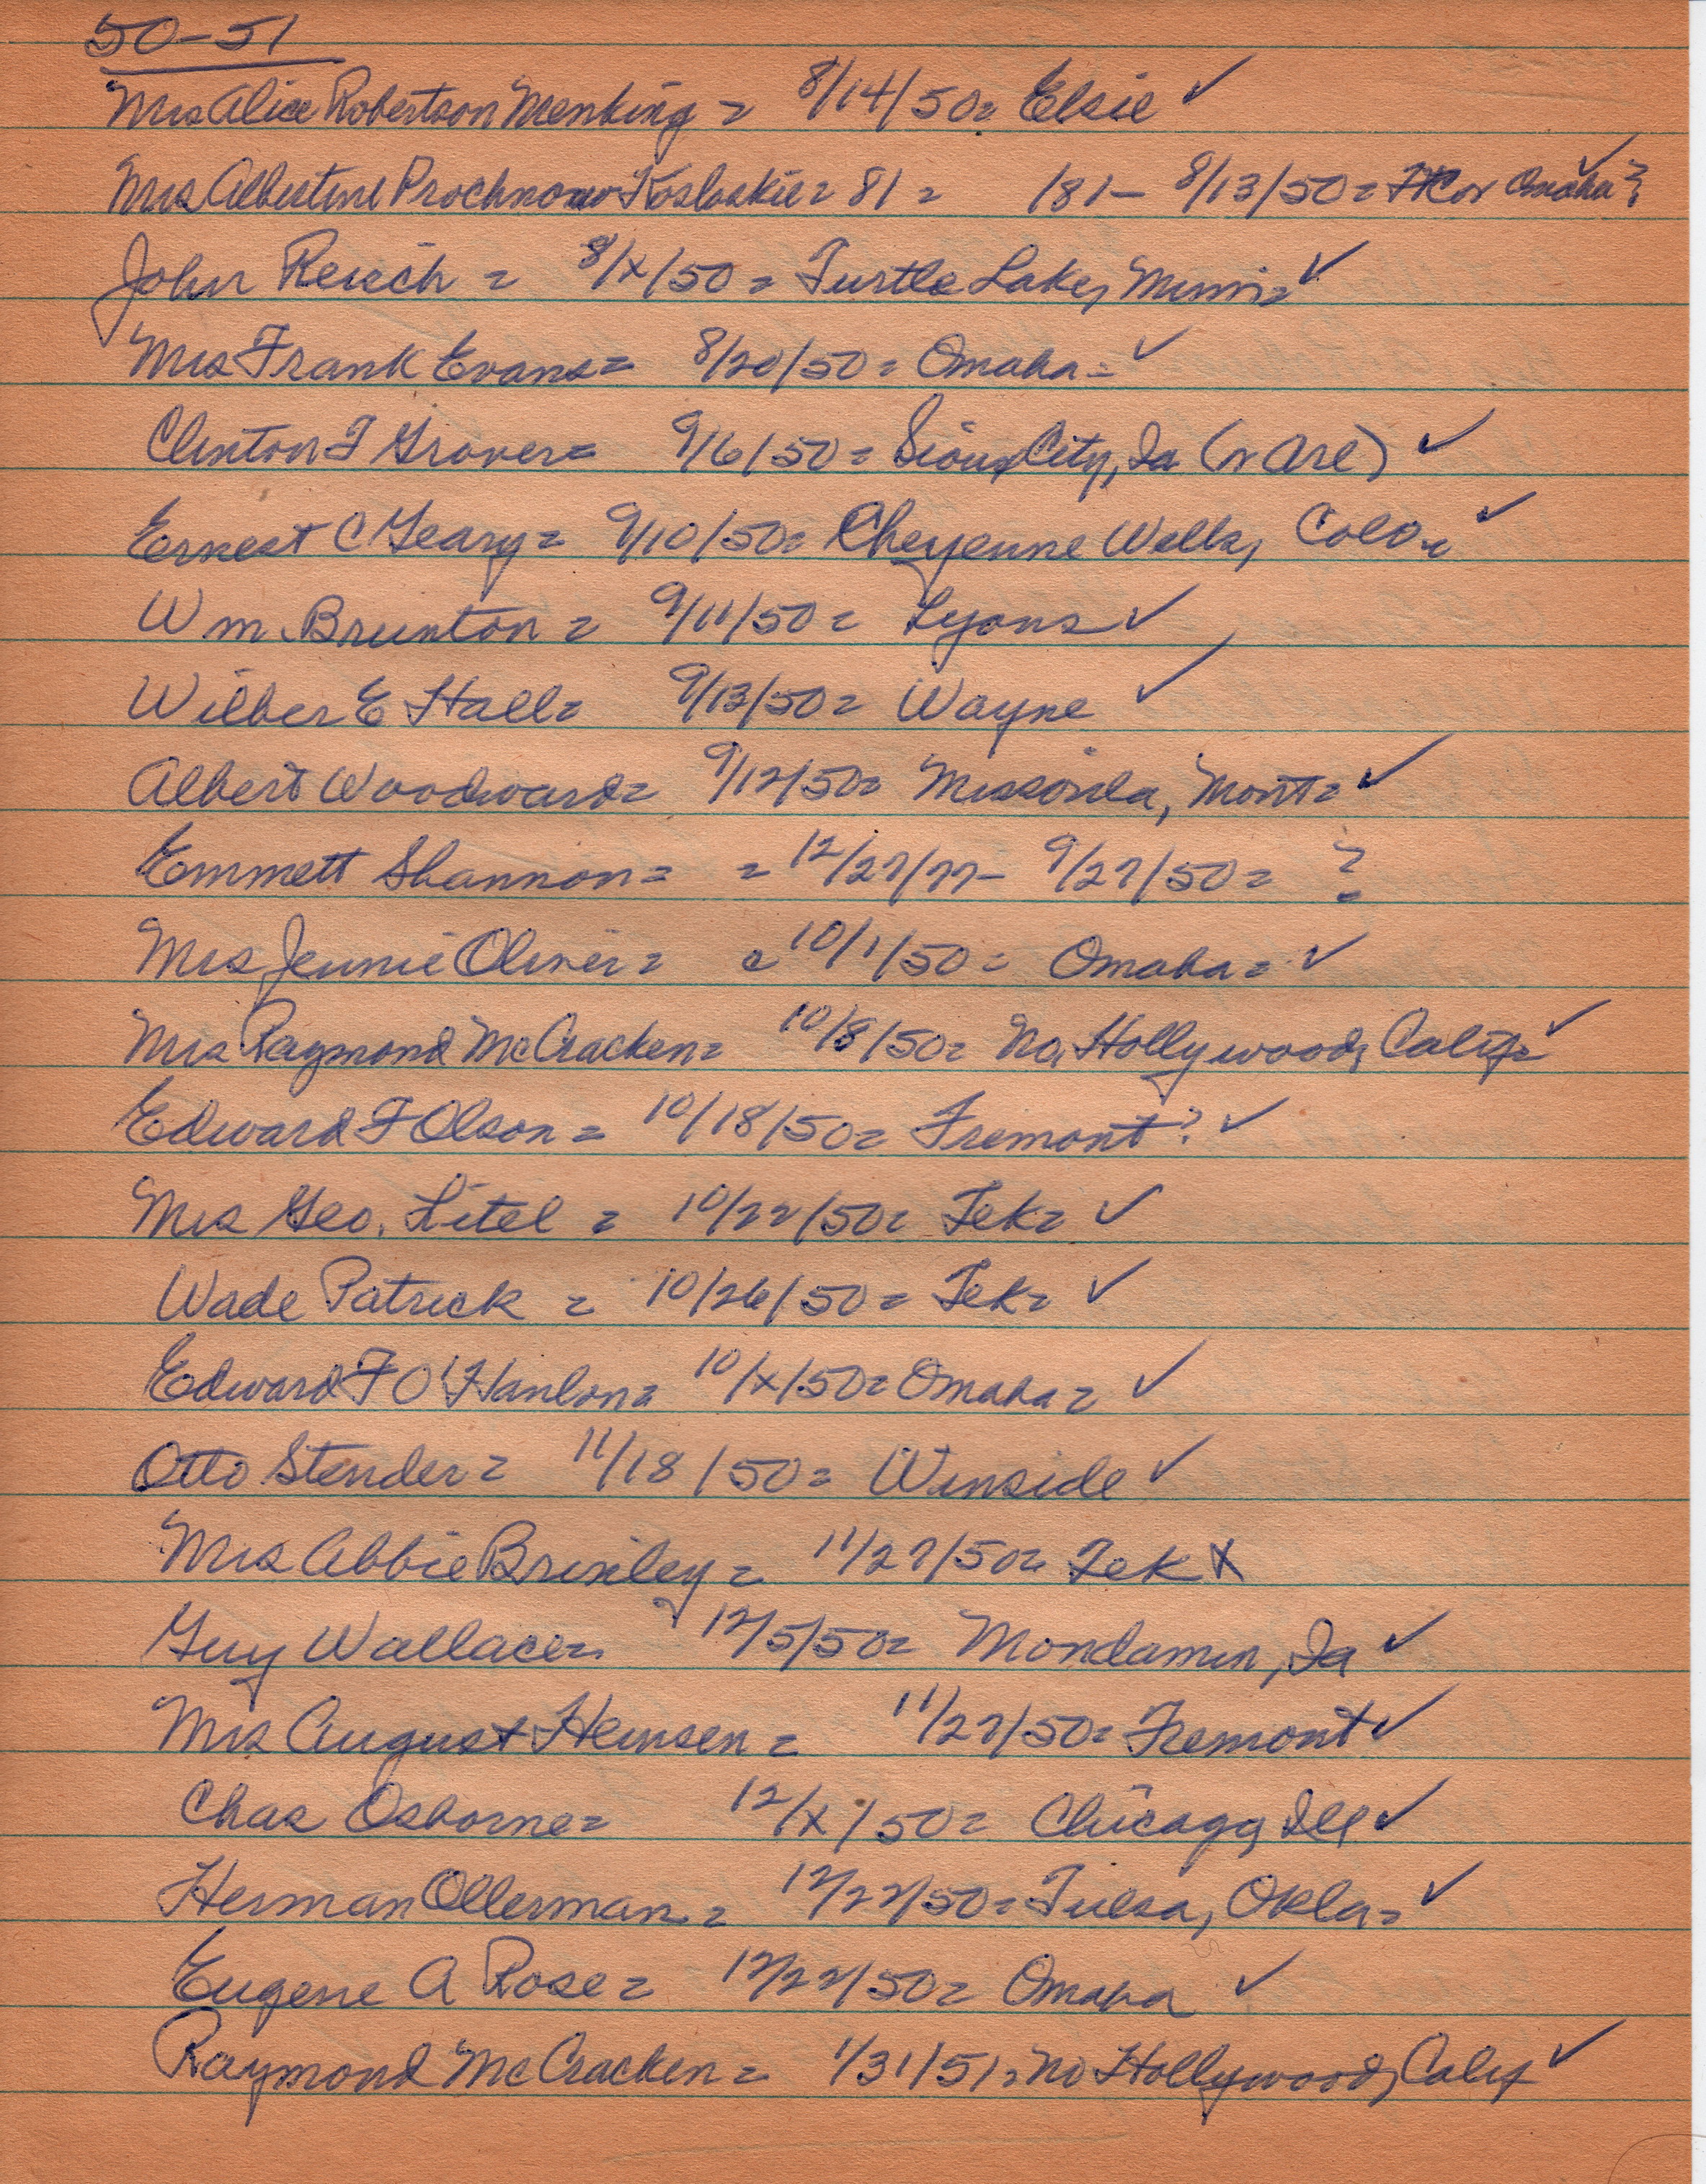 50-51
Mrs Alice Robertson Menking = 8/14/50= Elsie ✓
Mrs Albertine Prochnow Koslaskie= 81 = 181- 8/13/50= or Omaha? ✓
John Reich = 8/x/50 = Turtle Lake, Minn= ✓
Mrs Frank Evans= 8/20/50= Omaha= ✓
Clinton F Grover= 9/6/50= Sioux City, Ia (nr Are) ✓
Ernest C Geary= 9/10/50= Cheyenne Wells, Colo= ✓
Wm. Brunton = 9/11/50= Lyons ✓
Wilber E Hall= 9/13/50= Wayne ✓
Albert Woodward= 9/12/50= Missoula, Mont= ✓
Emmett Shannon= = 12/27/77- 9/27/50= ?
Mrs Jennie Oliver= = 10/1/50= Omaha= ✓
Mrs Raymond McCracken= 10/8/50= No, Hollywood, Calif= ✓
Edward F Olson= 10/18/50= Fremont? ✓
Mrs Geo. Litel = 10/22/50= Tek= ✓
Wade Patrick = 10/26/50= Tek= ✓
Edward F O'Hanlon= 10/x/50= Omaha= ✓
Otto Stender= 11/18/50= Winside ✓
Mrs Abbie Brinley= 11/27/50= Tek X
Guy Wallace= 12/5/50= Mondamin, Ia ✓
Mrs August Heinsen= 11/27/50= Fremont ✓
Chas Osborne= 12/x/50= Chicago, Ill ✓
Herman Ollerman= 12/22/50= Tulsa, Okla= ✓
Eugene A Rose= 12/22/50= Omaha ✓
Raymond McCracken= 1/31/51= No Hollywood, Calif ✓